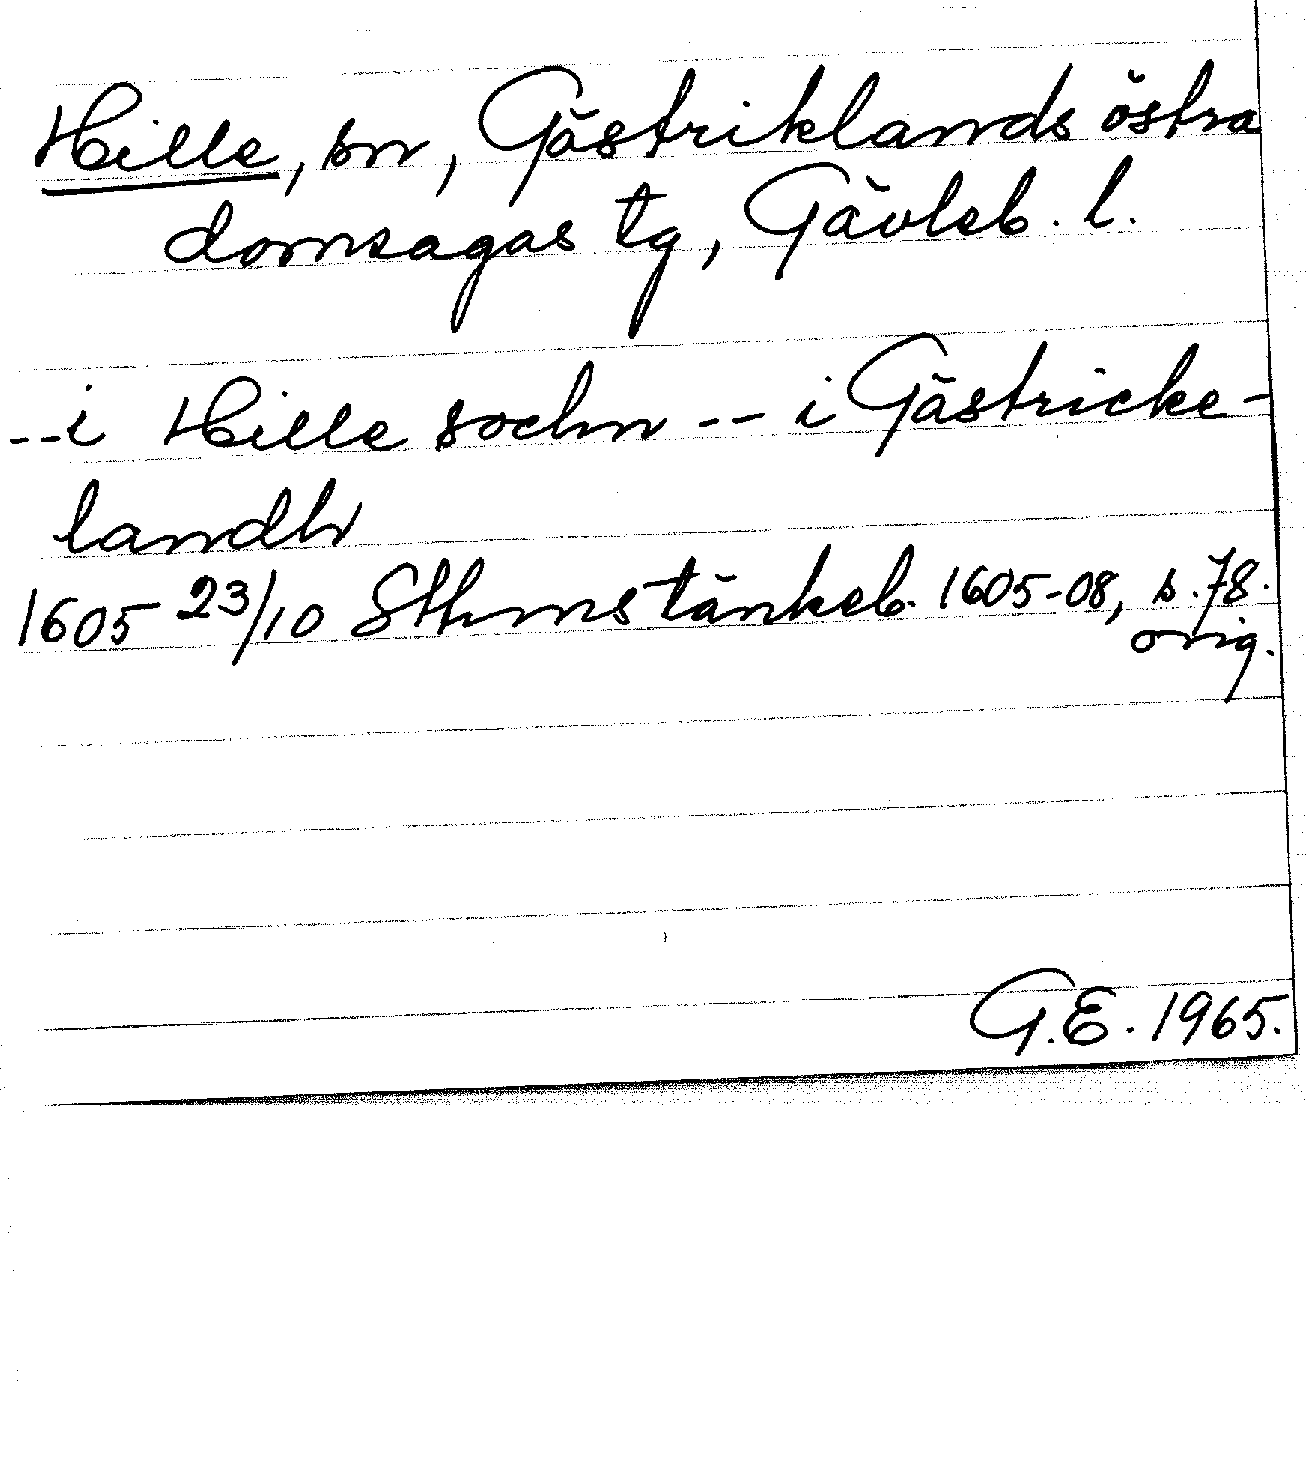 Hille, sn, Gästriklands östra
domsagas tg, Gävleb. l.
--i Hille sochn -- i Gästricke-
landh
1605 23/10 Sthms tänkeb. 1605-08, s. 78.
orig.
G.E. 1965.